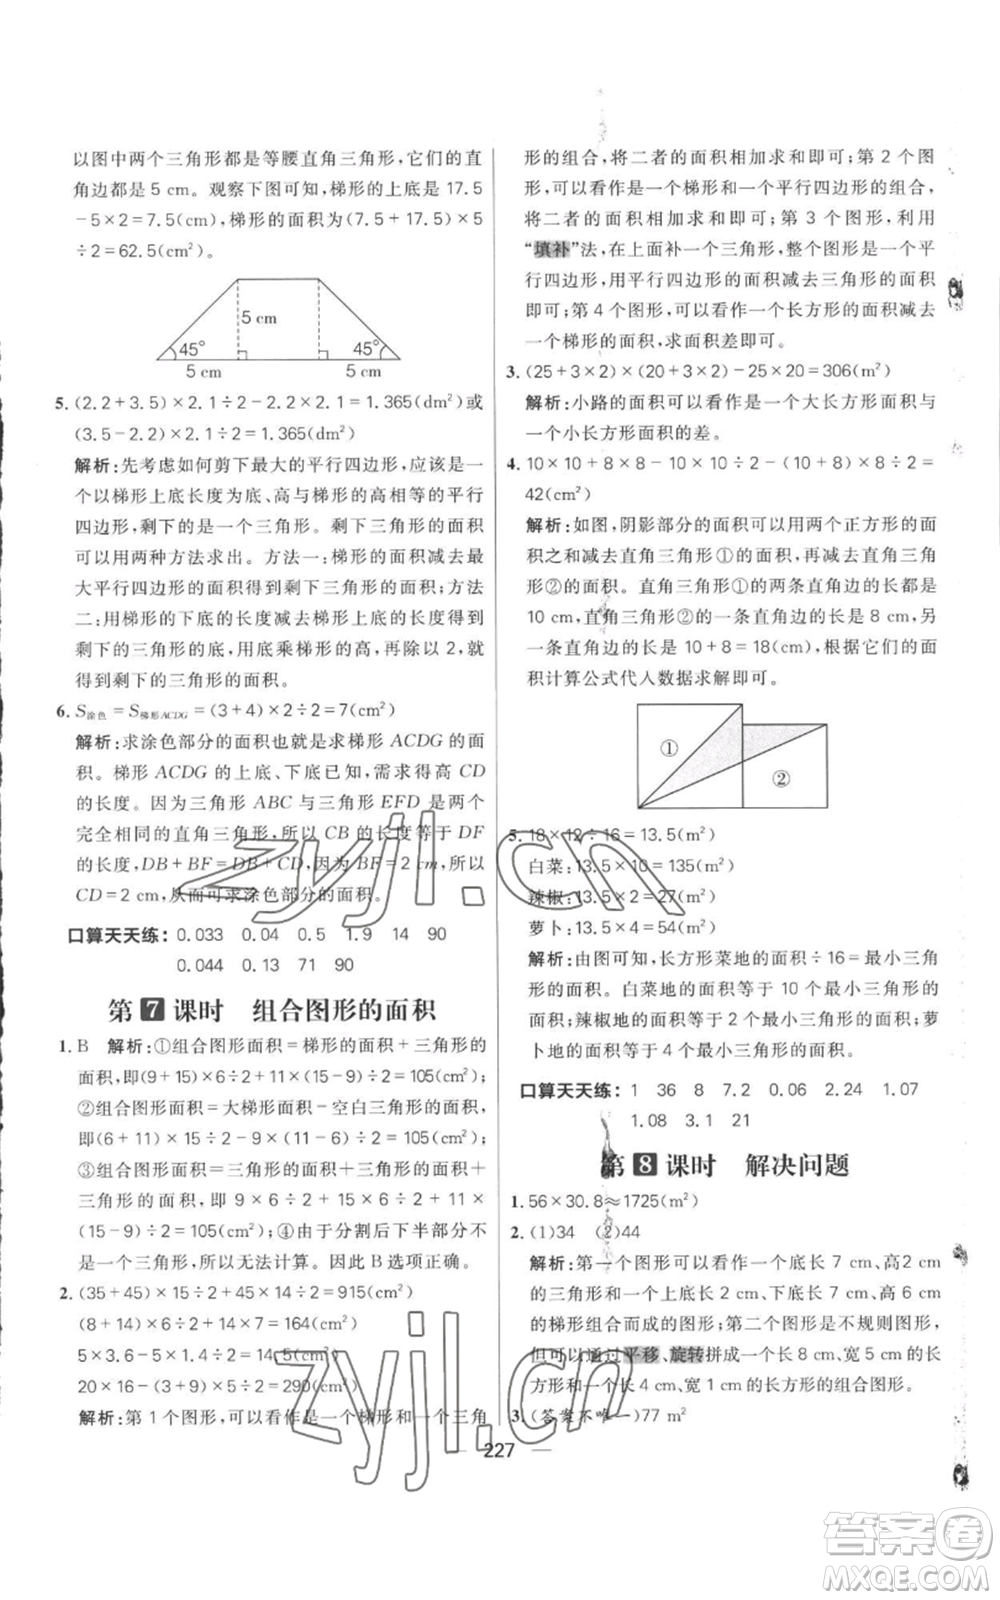 以图中两个三角形都是等腰直角三角形,它们的直
角边都是 5 cm。观察下图可知,梯形的上底是 17.5
-5×2=7.5(cm),梯形的面积为(7.5+17.5)×5
÷2=62.5(cm²)。
5 cm
45° 45°
5 cm 5 cm
5. (2.2+3.5)×2.1÷2-2.2×2.1=1.365(dm²)或
(3.5-2.2)×2.1÷2=1.365(dm²)
解析:先考虑如何剪下最大的平行四边形,应该是一
个以梯形上底长度为底、高与梯形的高相等的平行
四边形,剩下的是一个三角形。剩下三角形的面积
可以用两种方法求出。方法一:梯形的面积减去最
大平行四边形的面积得到剩下三角形的面积;方法
二:用梯形的下底的长度减去梯形上底的长度得到
剩下的三角形的底,用底乘梯形的高,再除以 2,就
得到剩下的三角形的面积。
6. S涂色=S梯形ACDG=(3+4)×2÷2=7(cm²)
解析:求涂色部分的面积也就是求梯形 ACDG 的面
积。梯形 ACDG 的上底、下底已知,需求得高 CD
的长度。因为三角形 ABC 与三角形 EFD 是两个
完全相同的直角三角形,所以 CB 的长度等于 DF
的长度,DB+BF=DB+CD,因为 BF=2 cm,所以
CD=2 cm,从而可求涂色部分的面积。
口算天天练: 0.033 0.04 0.5 1.9 14 90
0.044 0.13 71 90
第7课时 组合图形的面积
1. B 解析:①组合图形面积=梯形的面积+三角形的
面积,即(9+15)×6÷2+11×(15-9)÷2=105(cm²);
②组合图形面积=大梯形面积-空白三角形的面积,
即(6+11)×15÷2-9×(11-6)÷2=105(cm²);
③组合图形面积=三角形的面积+三角形的面积+
三角形的面积,即 9×6÷2+15×6÷2+11×
(15-9)÷2=105(cm²);④由于分割后下半部分不
是一个三角形,所以无法计算。因此 B 选项正确。
2. (35+45)×15÷2+45×14÷2=915(cm²)
(8+14)×6÷2+14×7=164(cm²)
5×3.6-5×1.4÷2=14.5(cm²)
20×16-(3+9)×5÷2=290(cm²)
解析:第 1 个图形,可以看作一个梯形和一个三角
形的组合,将二者的面积相加求和即可;第 2 个图
形,可以看作是一个梯形和一个平行四边形的组合,
将二者的面积相加求和即可;第 3 个图形,利用
“填补”法,在上面补一个三角形,整个图形是一个平
行四边形,用平行四边形的面积减去三角形的面积
即可;第 4 个图形,可以看作一个长方形的面积减去
一个梯形的面积,求面积差即可。
3. (25+3×2)×(20+3×2)-25×20=306(m²)
解析:小路的面积可以看作一个大长方形面积与
一个小长方形面积的差。
4. 10×10+8×8-10×10÷2-(10+8)×8÷2=
42(cm²)
解析:如图,阴影部分的面积可以用两个正方形的面
积之和减去直角三角形①的面积,再减去直角三角
形②的面积。直角三角形①的两条直角边的长都是
10 cm,直角三角形②的一条直角边的长是 8 cm,另
一条直角边的长是 10+8=18(cm),根据它们的面
积计算公式代入数据求解即可。
①
②
5. 18×12÷16=13.5(m²)
白菜:13.5×10=135(m²)
辣椒:13.5×2=27(m²)
萝卜:13.5×4=54(m²)
解析:由图可知,长方形菜地的面积÷16=最小三角
形的面积。白菜地的面积等于 10 个最小三角形的
面积;辣椒地的面积等于 2 个最小三角形的面积;萝
卜地的面积等于 4 个最小三角形的面积。
口算天天练: 1 36 8 7.2 0.06 2.24 1.07
1.08 3.1 21
第8课时 解决问题
1. 56×30.8≈1725(m²)
2. (1)34 (2)44
解析:第一个图形可以看作一个底长 7 cm、高2 cm
的三角形和一个上底长 2 cm、下底长 7 cm、高 6 cm
的梯形组合而成的图形;第二个图形是不规则图形,
但可以通过平移、旋转拼成一个长 8 cm、宽 5 cm 的长
方形和一个长 4 cm、宽 1 cm 的长方形的组合图形。
3. (答案不唯一)77 m²
227
zyjl.cn
zyjl.cn
答案卷
MXQE.COM